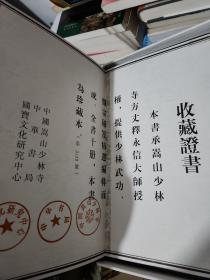 收藏證書
本書承嵩山少林
寺方丈釋永信大師授
權，提供少林武功、
醫宗秘笈精選編輯而
成，全書十册，本書
為珍藏本
中國嵩山少林寺
中華書局
國寶文化研究中心